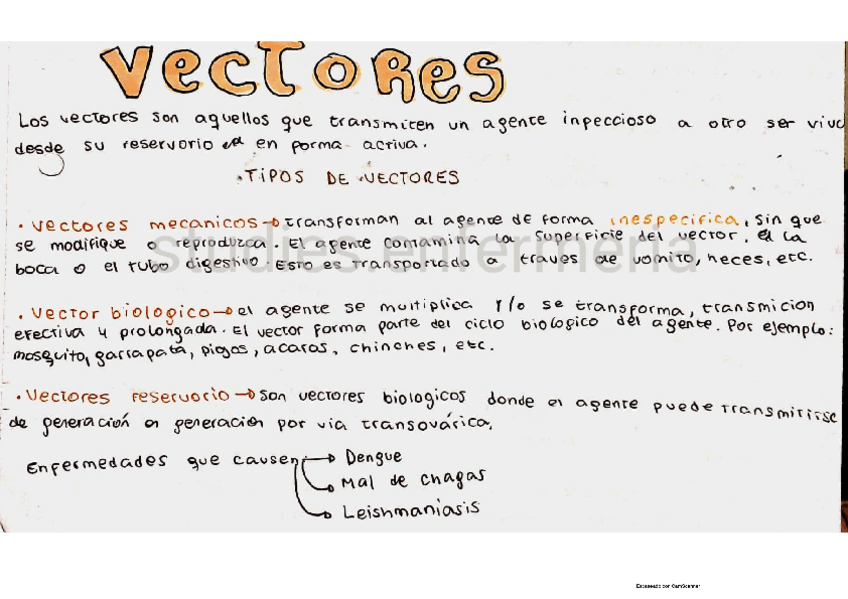 VECTORES
Los vectores son aquellos que transmiten un agente inpeccioso a otro ser vivo
desde su reservorio en forma activa.
•TIPOS DE VECTORES
• vectores mecanicos → transforman al agente de forma inespecifica, sin que
se modifique o reproduzca. El agente contamina la superficie del vector, la
boca o el tubo digestivo. Esto es transportado a traves de vomito, heces, etc.
• Vector biologico → el agente se multiplica y/o se transforma, transmicion
efectiva y prolongada. El vector forma parte del ciclo biologico del agente. Por ejemplo:
mosquito, garrapata, piojos, acaros, chinches, etc.
• Vectores reservorio → Son vectores biologicos donde el agente puede transmitirse
de generación en generación por via transovárica.
Enfermedades que causen → Dengue
→ Mal de chagas
→ Leishmaniasis
studies.enfermeria
Escaneado con CamScanner